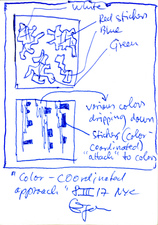 White
Red stickers
Blue
Green
various colors
dripping down
Sticks (color-
coordinated)
"attach" to colors
"Color-COORDINATED
approach" 8 III 17 NYC